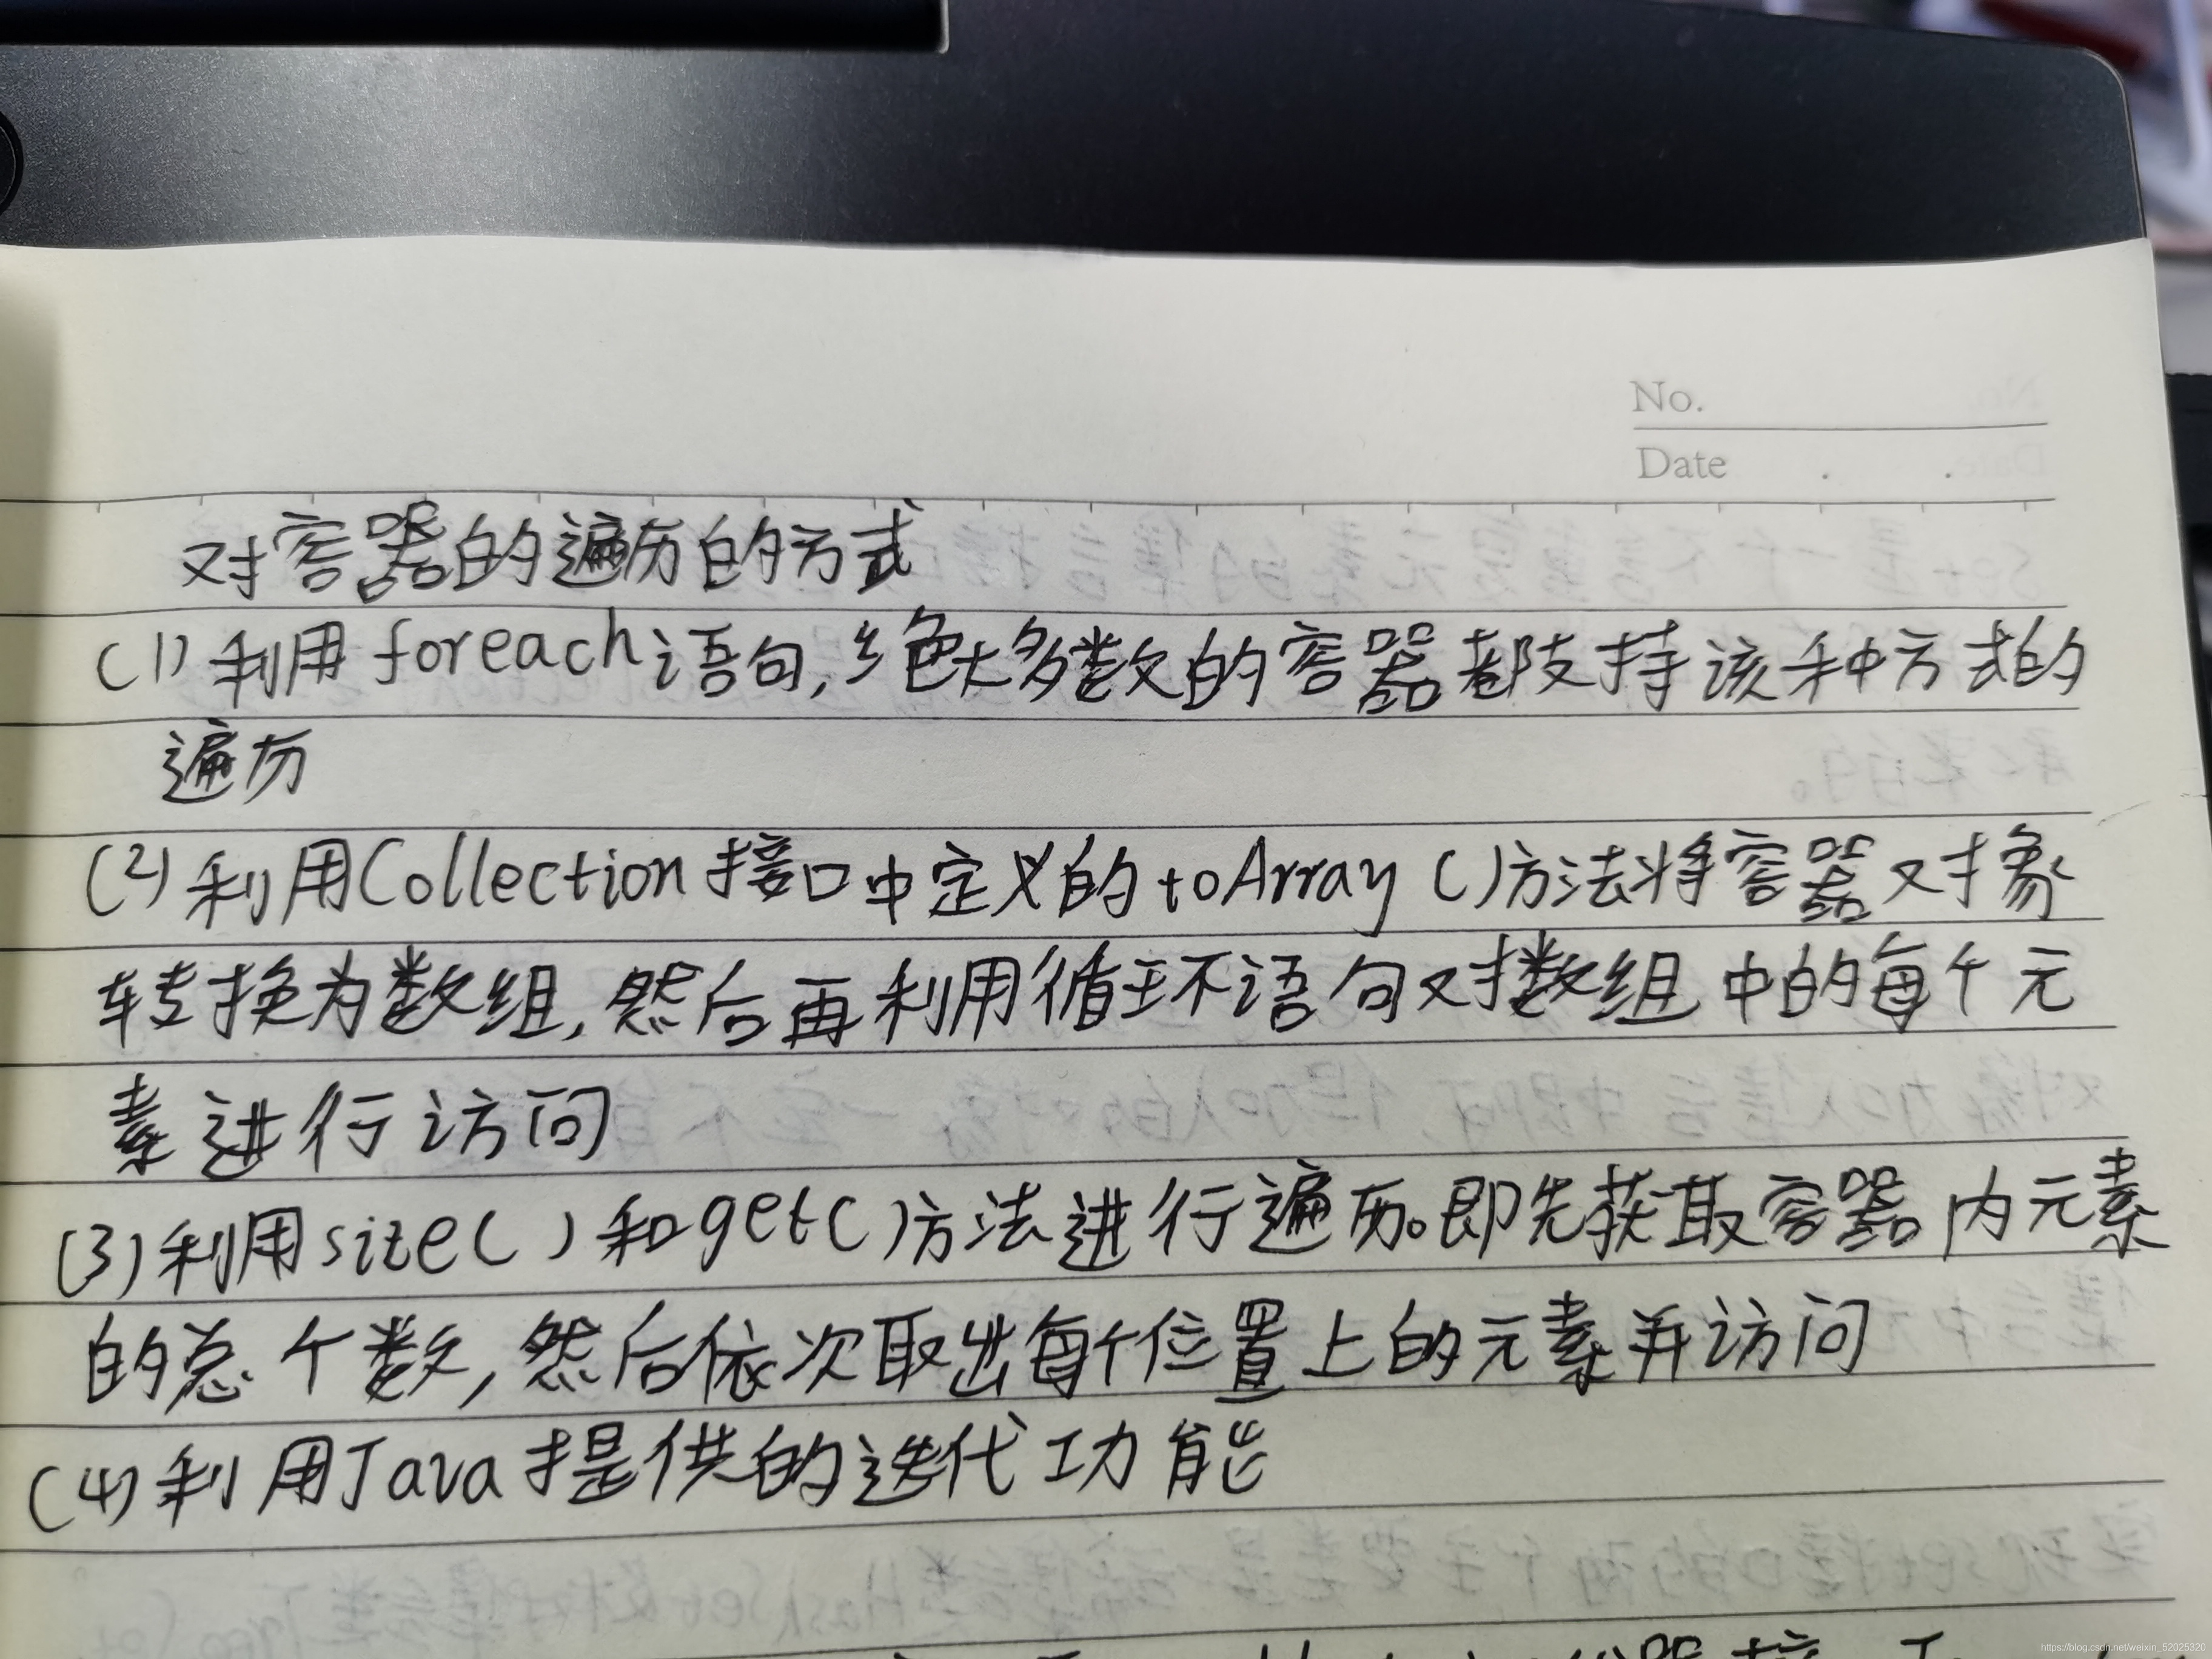 No.
Date . .
对容器的遍历的方式
(1)利用foreach语句,绝大多数的容器都支持该种方式的
遍历
(2)利用Collection接口中定义的toArray()方法将容器对象
转换为数组,然后再利用循环语句对数组中的每个元
素进行访问
(3)利用size()和get()方法进行遍历。即先获取容器内元素
的总个数,然后依次取出每个位置上的元素并访问
(4)利用Java提供的迭代功能
https://blog.csdn.net/weixin_52025320